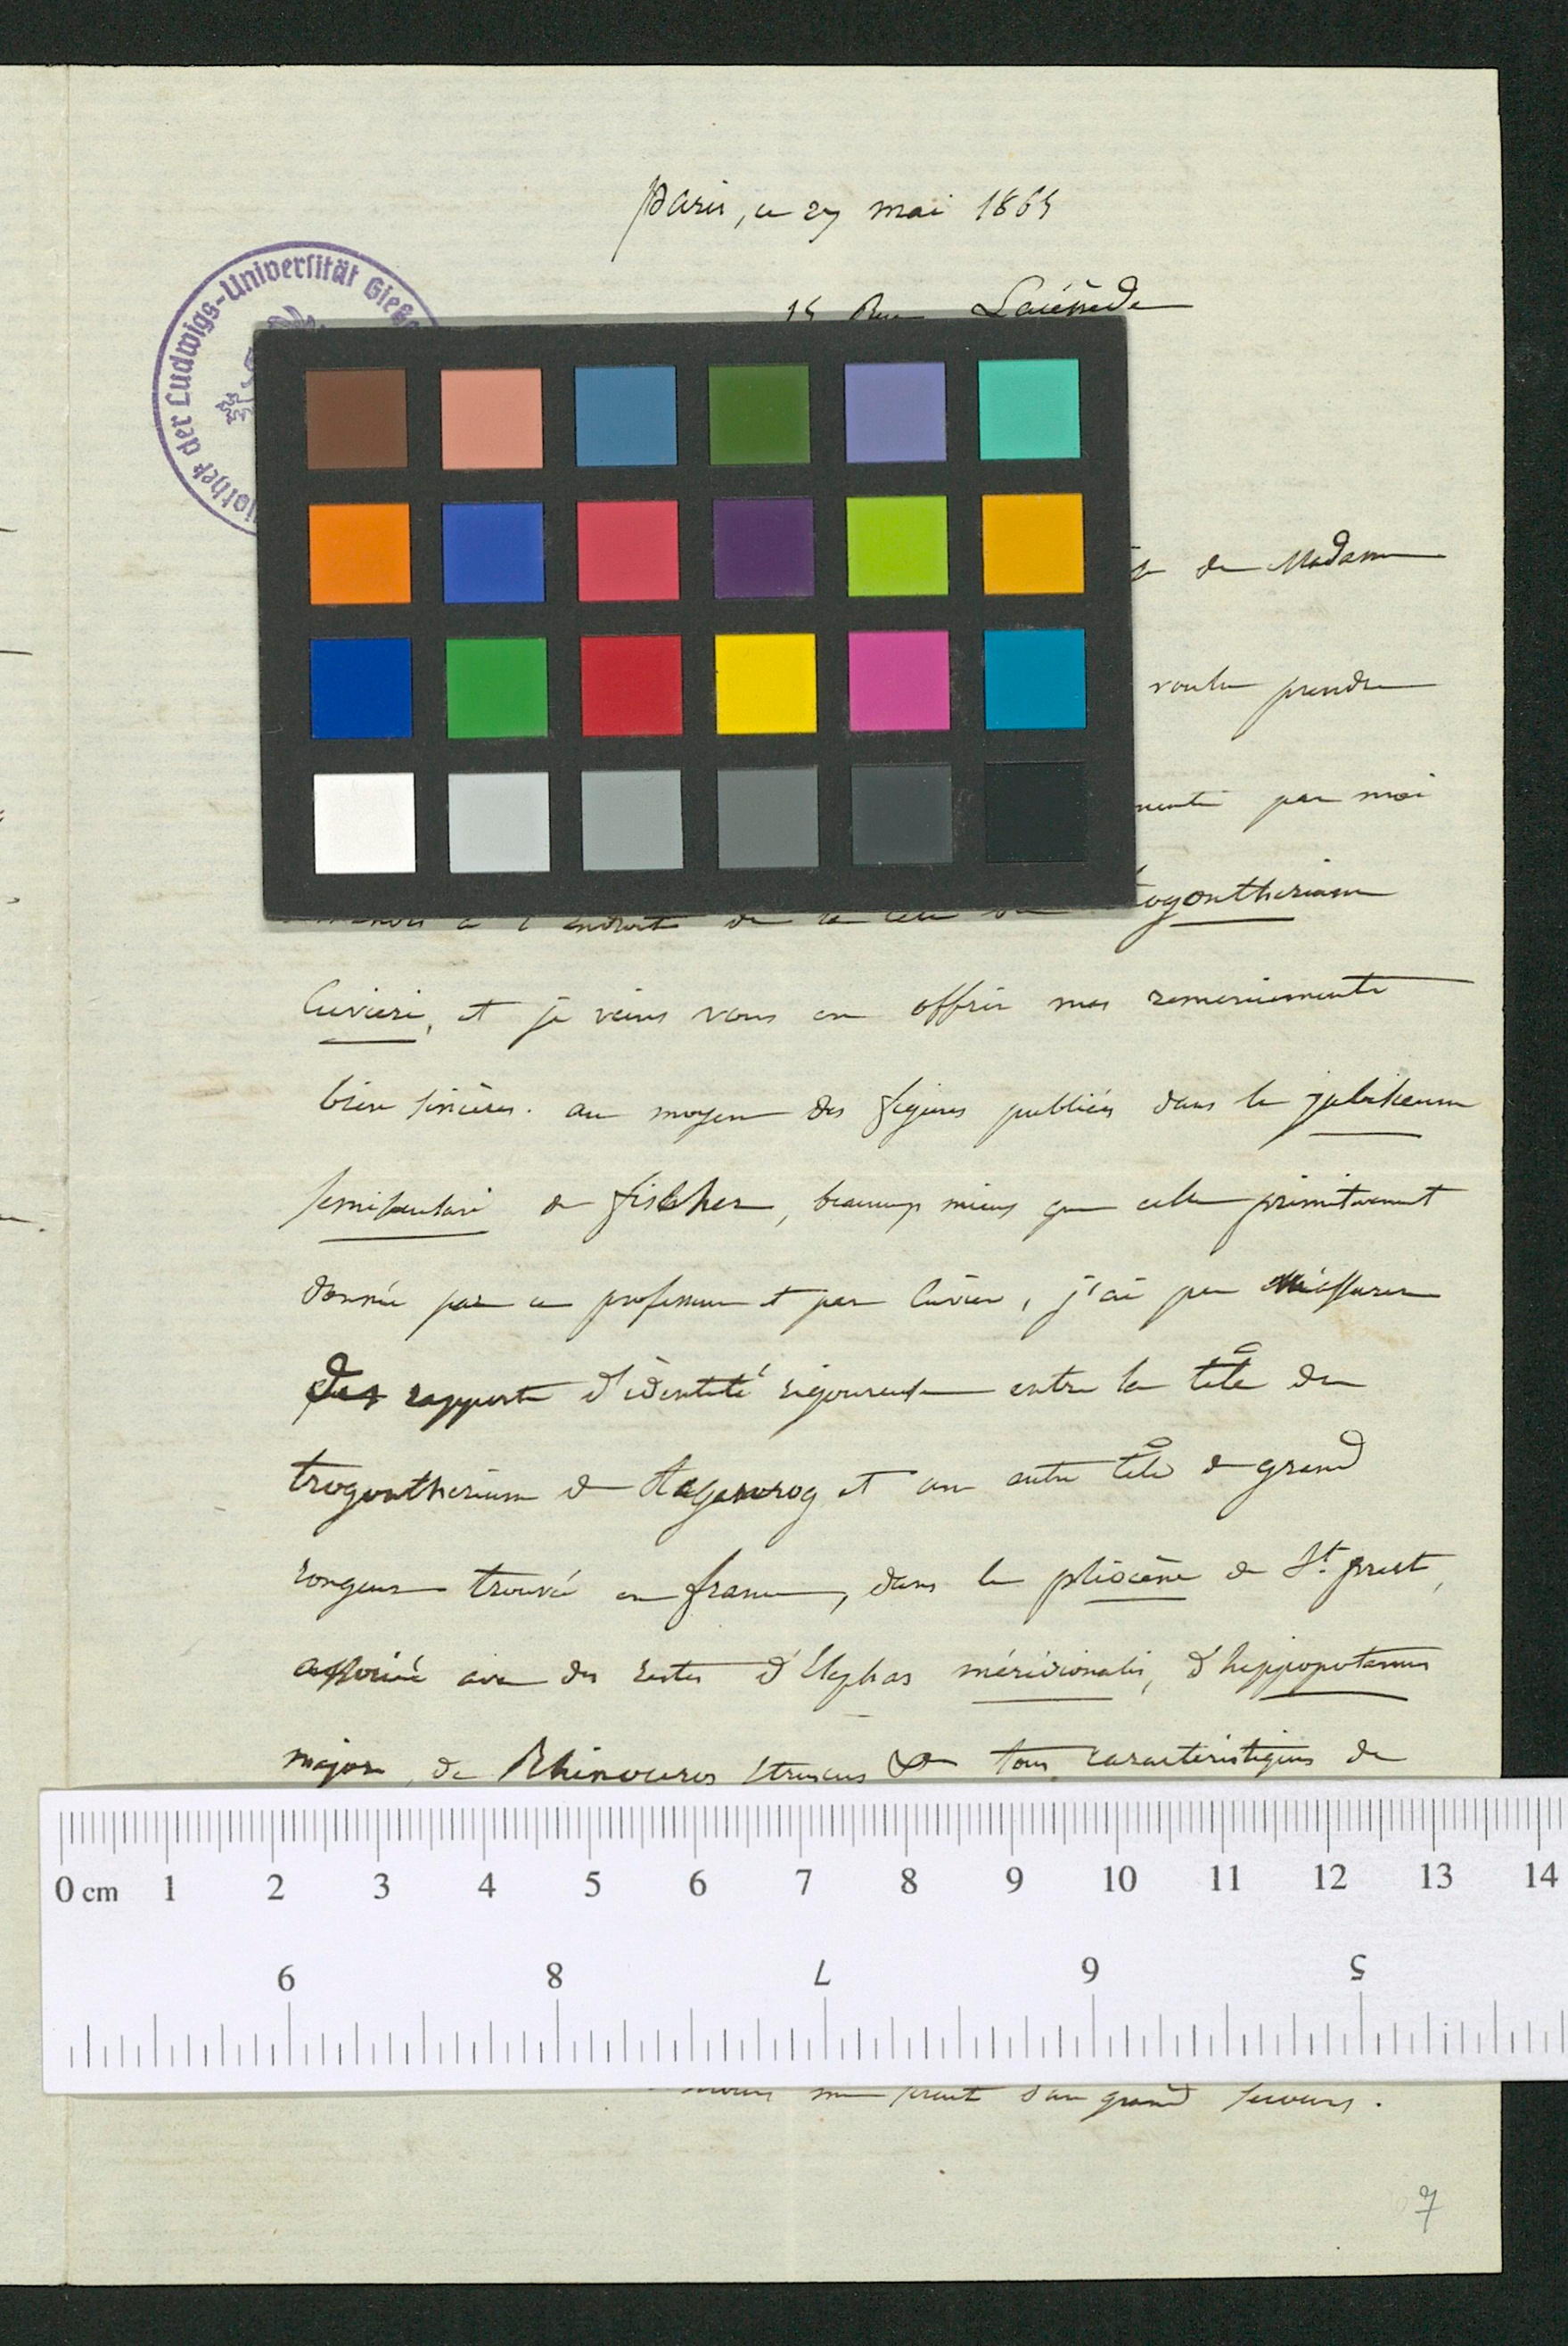 Paris, ce 27 mai 1865
15 Rue Lacépède
Bibliothek der Ludwigs-Universität Gieße
de Madame
voulu prendre
par moi
à l'endroit de la tête du trogontherium
Cuvieri, et je viens vous en offrir mes remerciements
bien sincères. au moyen des figures publiées dans le jubilaeum
semisaeculari de fischer, beaucoup mieux que celle primitivement
donnée par ce professeur et par Cuvier, j'ai pu m'assurer
des rapports d'identité rigoureuse entre la tête du
trogontherium de tagenrog et une autre tête de grand
rongeur trouvé en france, dans le pliocène de St. prest,
associé avec des restes d'Elephas méridionalis, d'hippopotamus
major, de Rhinoceros etruscus & tous caractéristiques de
0 cm 1 2 3 4 5 6 7 8 9 10 11 12 13 14
9 8 7 6 5
me serait d'un grand secours.
7